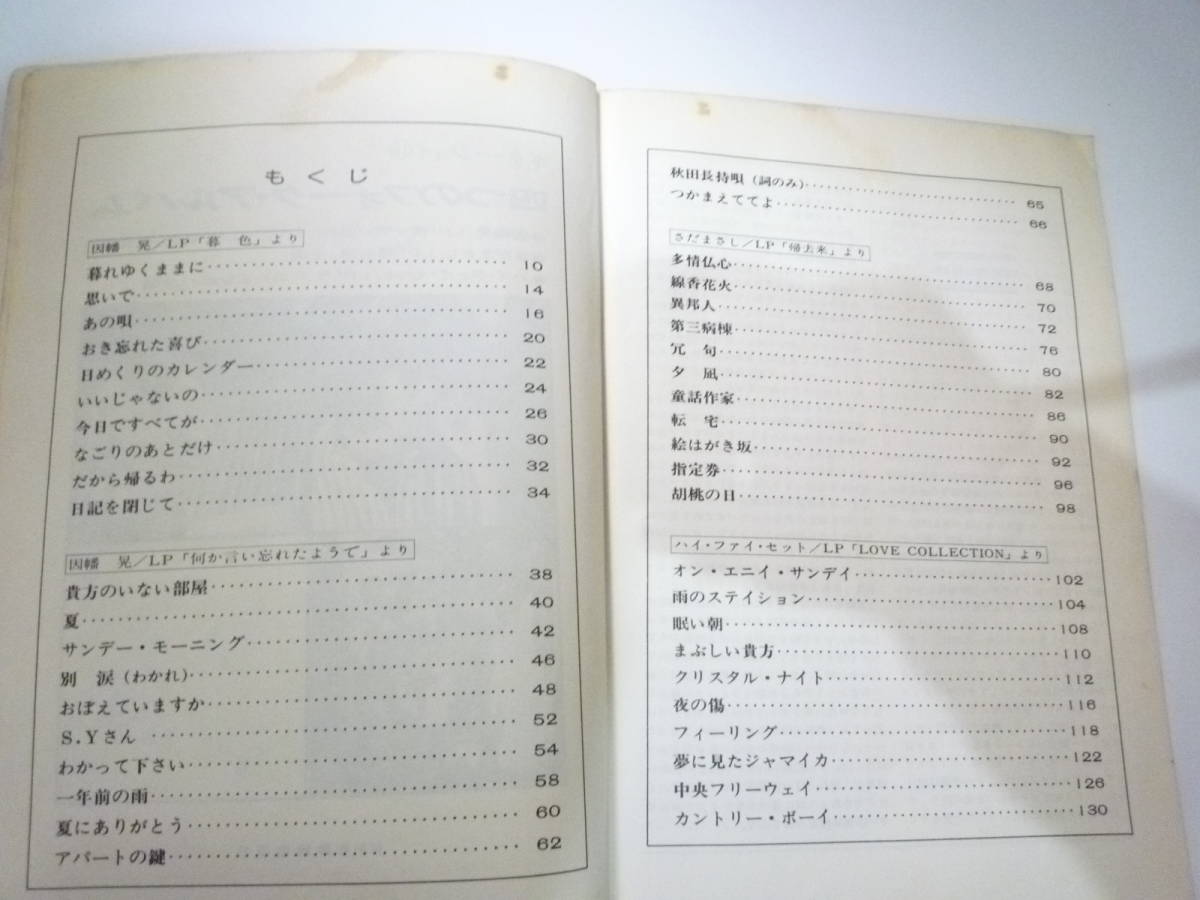 もくじ
因幡 晃/LP「暮 色」より
暮れゆくままに 10
思いで 14
あの唄 16
おき忘れた喜び 20
日めくりのカレンダー 22
いいじゃないの 24
今日ですべてが 26
なごりのあとだけ 30
だから帰るわ 32
日記を閉じて 34
因幡 晃/LP「何か言い忘れたようで」より
貴方のいない部屋 38
夏 40
サンデー・モーニング 42
別 涙(わかれ) 46
おぼえていますか 48
S.Yさん 52
わかって下さい 54
一年前の雨 58
夏にありがとう 60
アパートの鍵 62
秋田長持唄(詞のみ) 65
つかまえててよ 66
さだまさし/LP「帰去来」より
多情仏心 68
線香花火 70
異邦人 72
第三病棟 76
冗 句 80
夕 凪 82
童話作家 86
転 宅 90
絵はがき坂 92
指定券 96
胡桃の日 98
ハイ・ファイ・セット/LP「LOVE COLLECTION」より
オン・エニイ・サンデイ 102
雨のステイション 104
眠い朝 108
まぶしい貴方 110
クリスタル・ナイト 112
夜の傷 116
フィーリング 118
夢に見たジャマイカ 122
中央フリーウェイ 126
カントリー・ボーイ 130